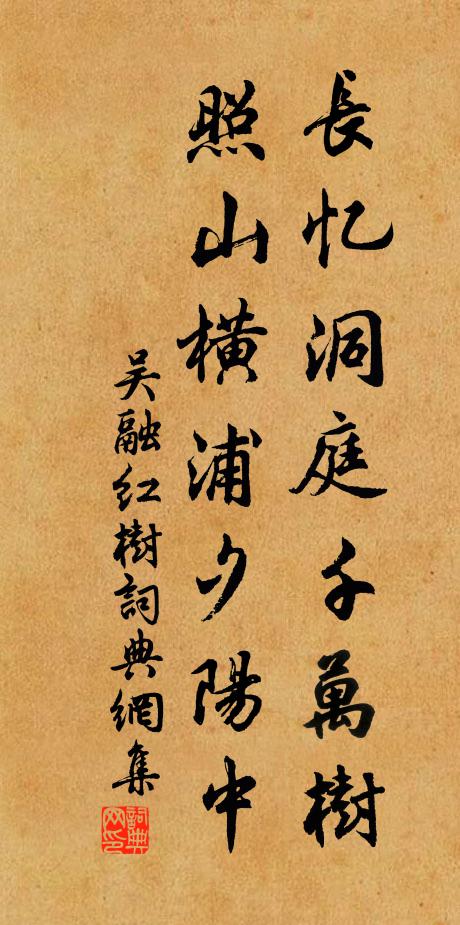 長忆洞庭千萬樹
照山橫浦夕陽中
吴融红樹詞典網集
詞典网印